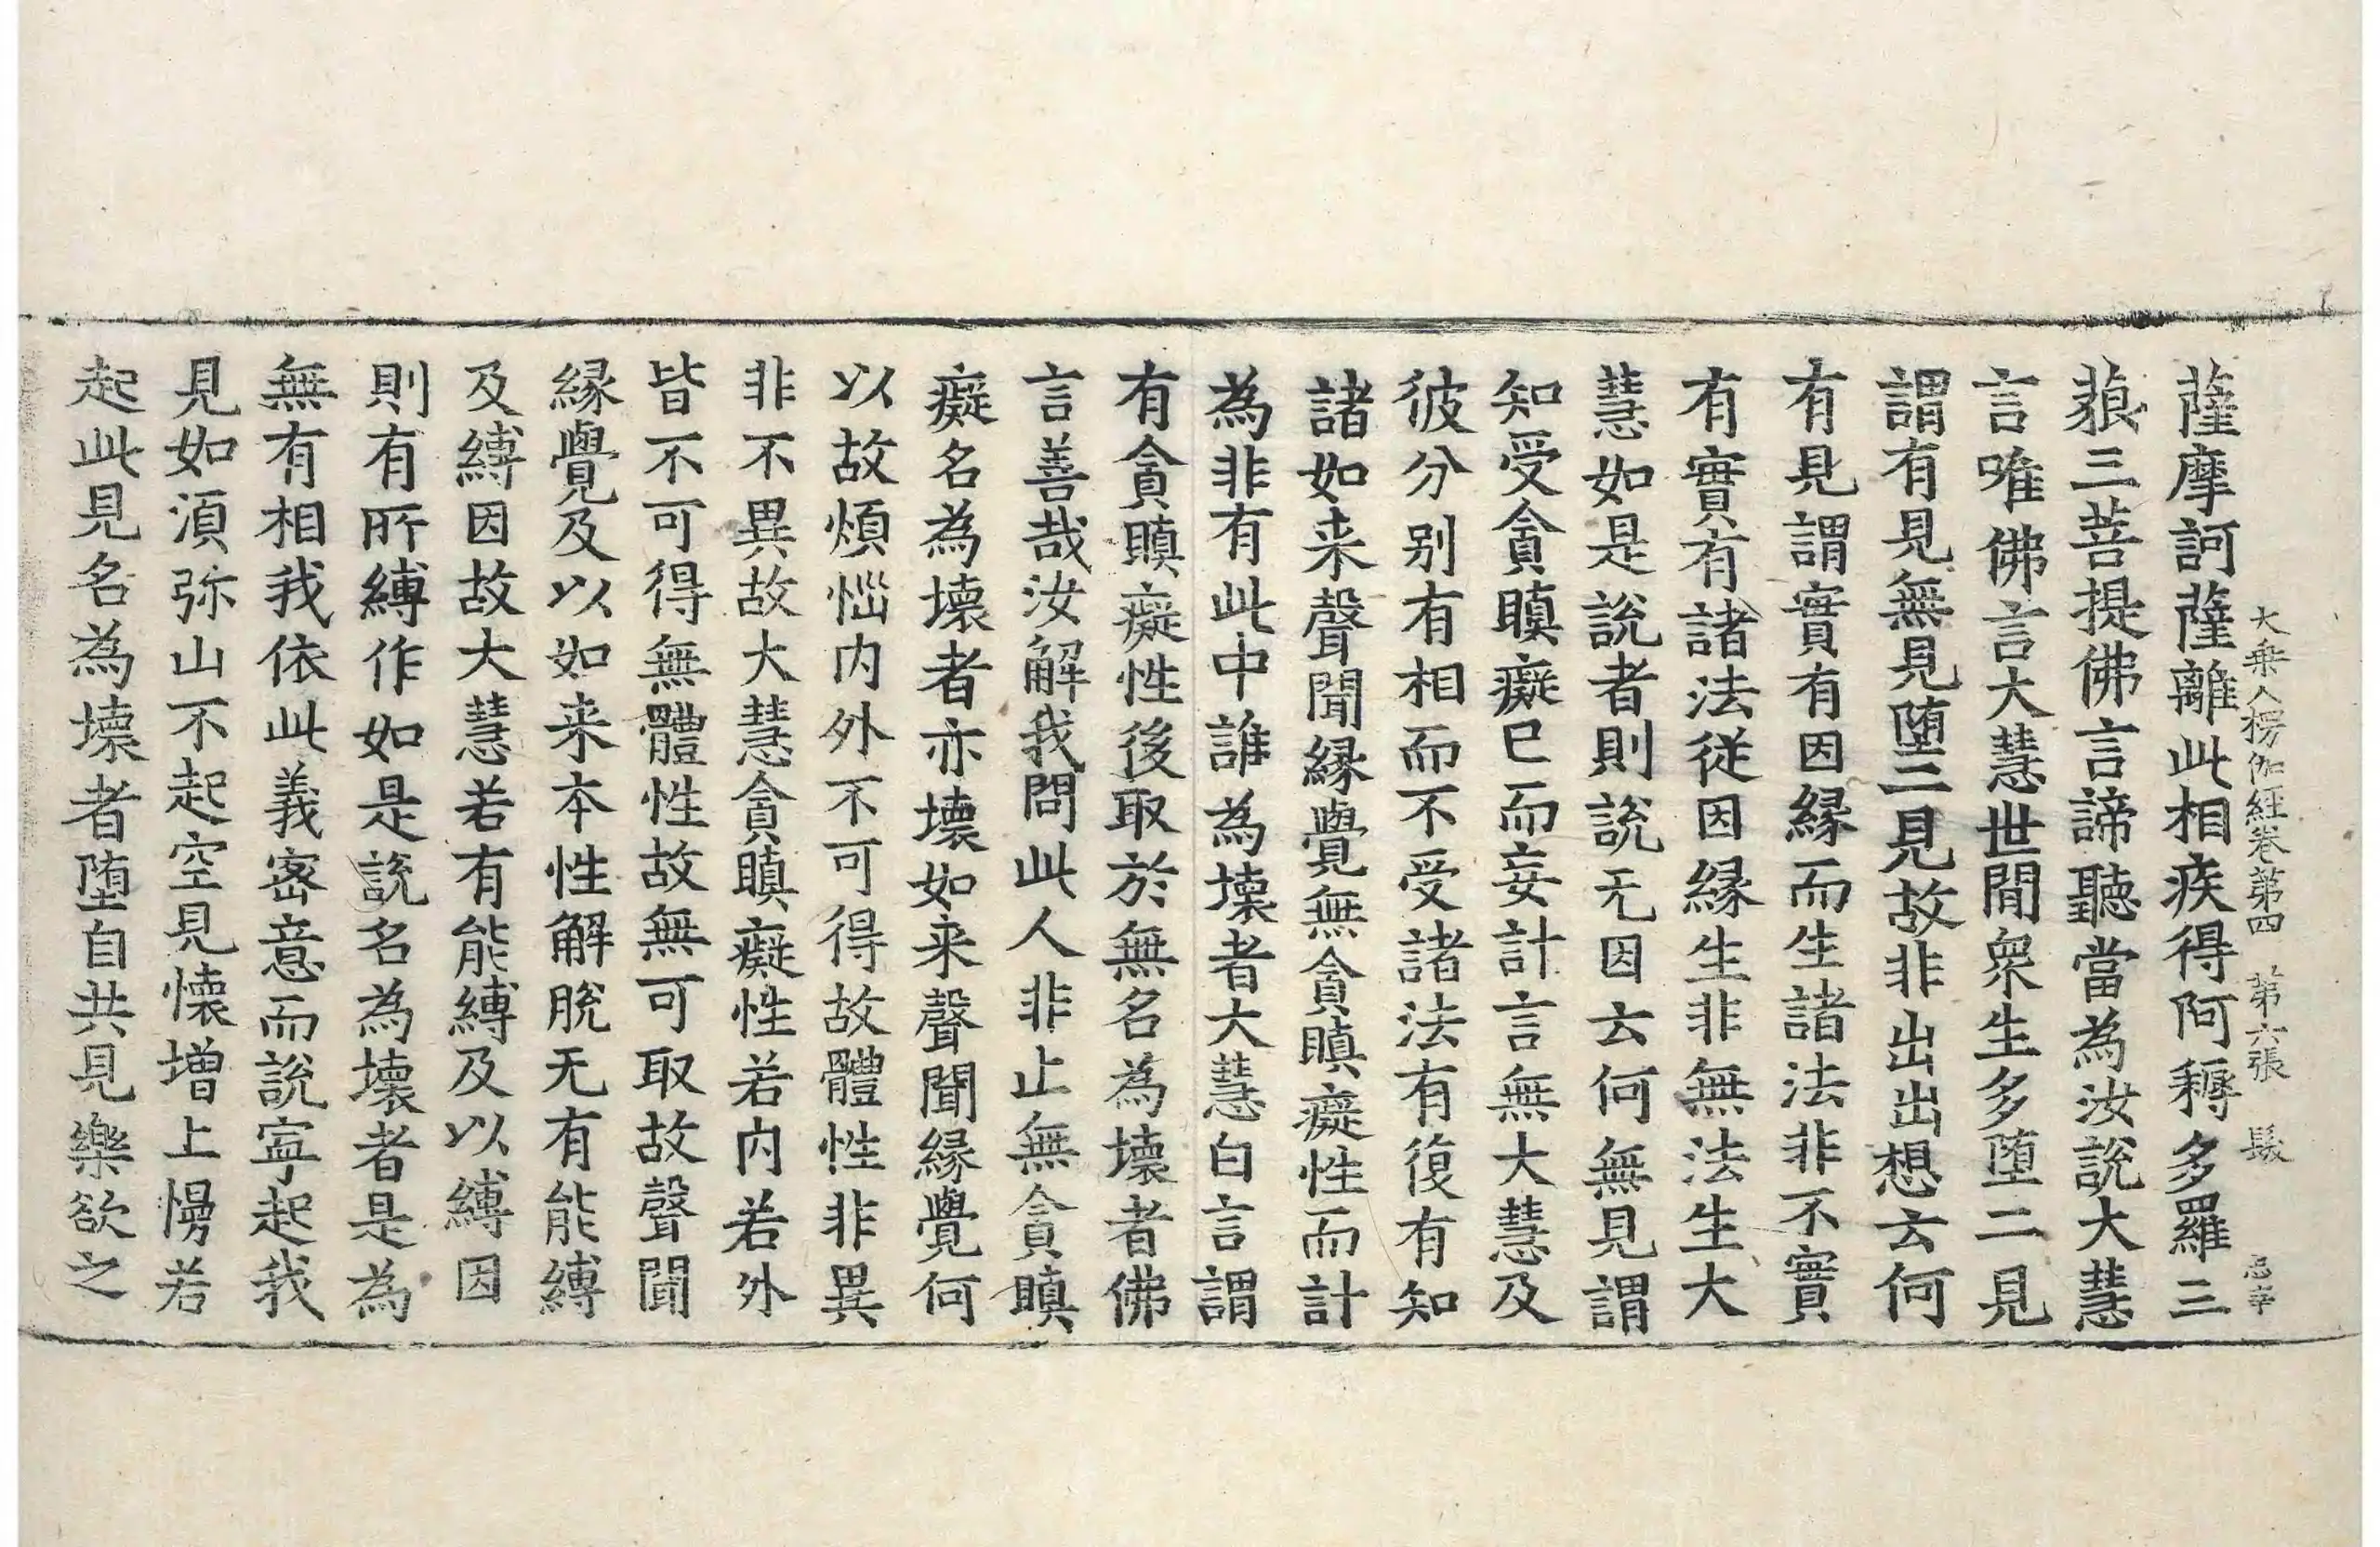 大乘入楞伽經卷第四　第六張　髮　忠幸
薩摩訶薩離此相疾得阿耨多羅三
藐三菩提佛言諦聽當為汝說大慧
言唯佛言大慧世間衆生多堕二見
謂有見無見堕二見故非出出想云何
有見謂實有因縁而生諸法非不實
有實有諸法從因縁生非無法生大
慧如是說者則說无因云何無見謂
知受貪瞋癡已而妄計言無大慧及
彼分别有相而不受諸法有復有知
諸如来聲聞縁覺無貪瞋癡性而計
為非有此中誰為壞者大慧白言謂
有貪瞋癡性後取於無名為壞者佛
言善哉汝解我問此人非止無貪瞋
癡名為壞者亦壞如来聲聞縁覺何
以故煩惱内外不可得故體性非異
非不異故大慧貪瞋癡性若内若外
皆不可得無體性故無可取故聲聞
縁覺及以如来本性解脫无有能縛
及縛因故大慧若有能縛及以縛因
則有所縛作如是說名為壞者是為
無有相我依此義密意而說寧起我
見如湏弥山不起空見懷增上慢若
起此見名為壞者堕自共見樂欲之